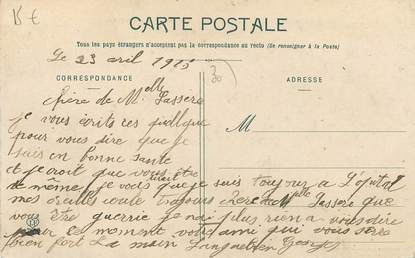 15 €
CARTE POSTALE
Tous les pays étrangers n'acceptent pas la correspondance au recto (Se renseigner à la Poste)
Le 23 avril 1915
30
CORRESPONDANCE
ADRESSE
chère de Melle Lassere
je vous écrits ces quelque
M
pour vous dire que je
suis en bonne santé
et je croit que vous être
de même je vous que je suis toujour a L'opital
mes oreilles coule toujours chere Melle Lassere que
vous être guerrie je nai plus rien a vous dire
pour le moment votre ami qui vous serre
bien fort La main Georges